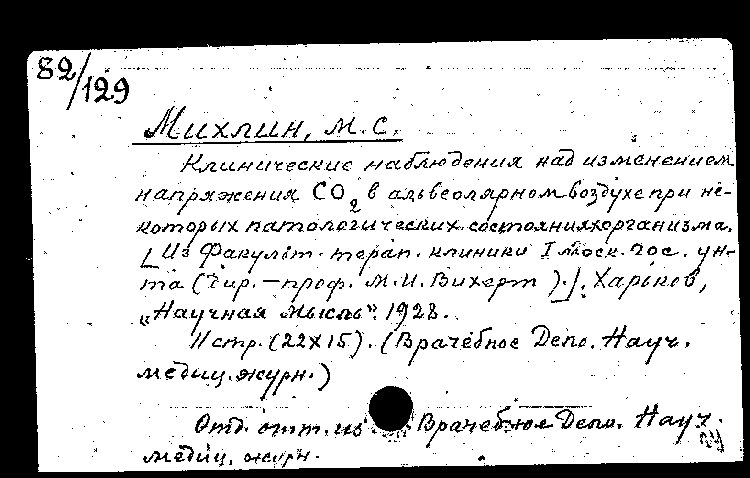 82/129
Михлин, М. С.
Клинические наблюдения над изменением
напряжения CO2 в альвеолярном воздухе при не-
которых патологических состояниях организма.
[Из Факульт. терап. клиники I Моск. гос. ун-
та (Дир. – проф. М. И. Вихерт ).]. Харьков,
„Научная Мысль". 1928.
11 стр. (22X15). (Врачебное Дело. Науч.
медиц. журн.)
Отд. отт. из Врачебное Дело. Науч.
медиц. журн.